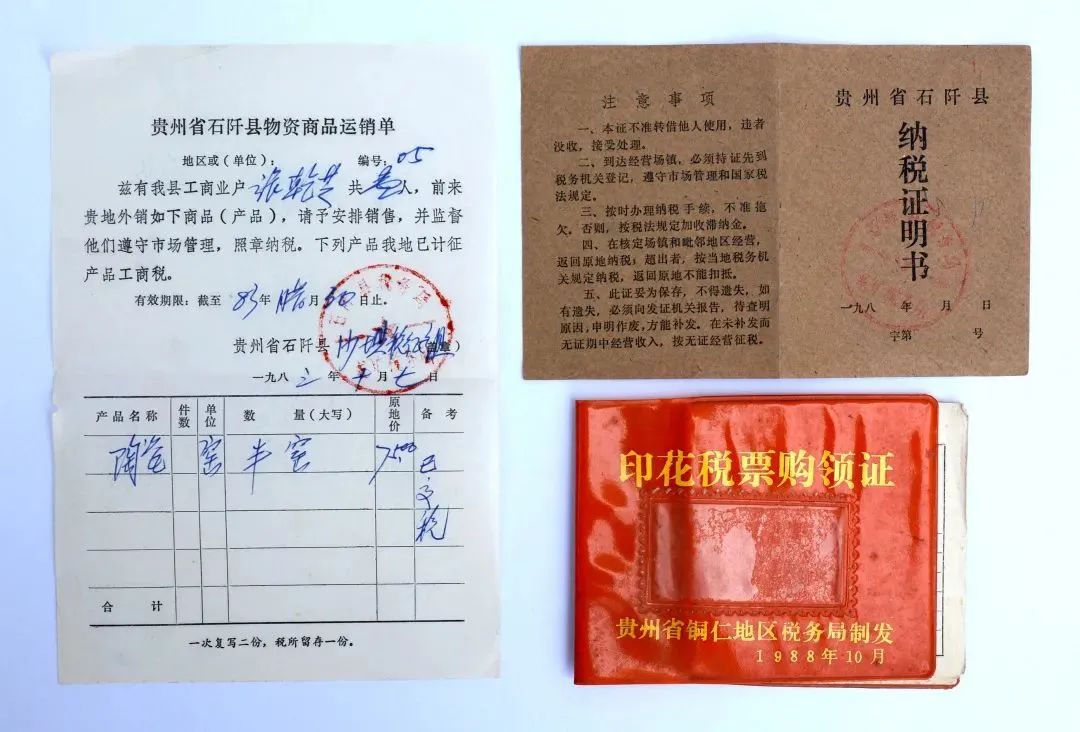 贵州省石阡县物资商品运销单
地区或(单位): 编号: 05
兹有我县工商业户 张乾芝 共 人, 前来
贵地外销如下商品(产品), 请予安排销售, 并监督
他们遵守市场管理, 照章纳税。下列产品我地已计征
产品工商税。
有效期限: 截至 83年 腊月 30日止。
贵州省石阡县 (盖章)
一九八三年十月七日
产品名称 件数 单位 数量(大写) 原地价 备考
陶瓷 窑 半窑 7500 已交税
合计
一次复写二份, 税所留存一份。
注意事项
一、本证不准转借他人使用, 违者
没收, 接受处理。
二、到达经营场镇, 必须持证先到
税务机关登记, 遵守市场管理和国家税
法规定。
三、按时办理纳税手续, 不准拖
欠。否则, 按税法规定加收滞纳金。
四、在核定场镇和毗邻地区经营,
返回原地纳税; 超出者, 按当地税务机
关规定纳税, 返回原地不能扣抵。
五、此证妥为保存, 不得遗失, 如
有遗失, 必须向发证机关报告, 待查明
原因, 申明作废, 方能补发。在未补发而
无证期中经营收入, 按无证经营征税。
贵州省石阡县
纳税证明书
一九八 年 月 日
字第 号
印花税票购领证
贵州省铜仁地区税务局制发
1988年10月